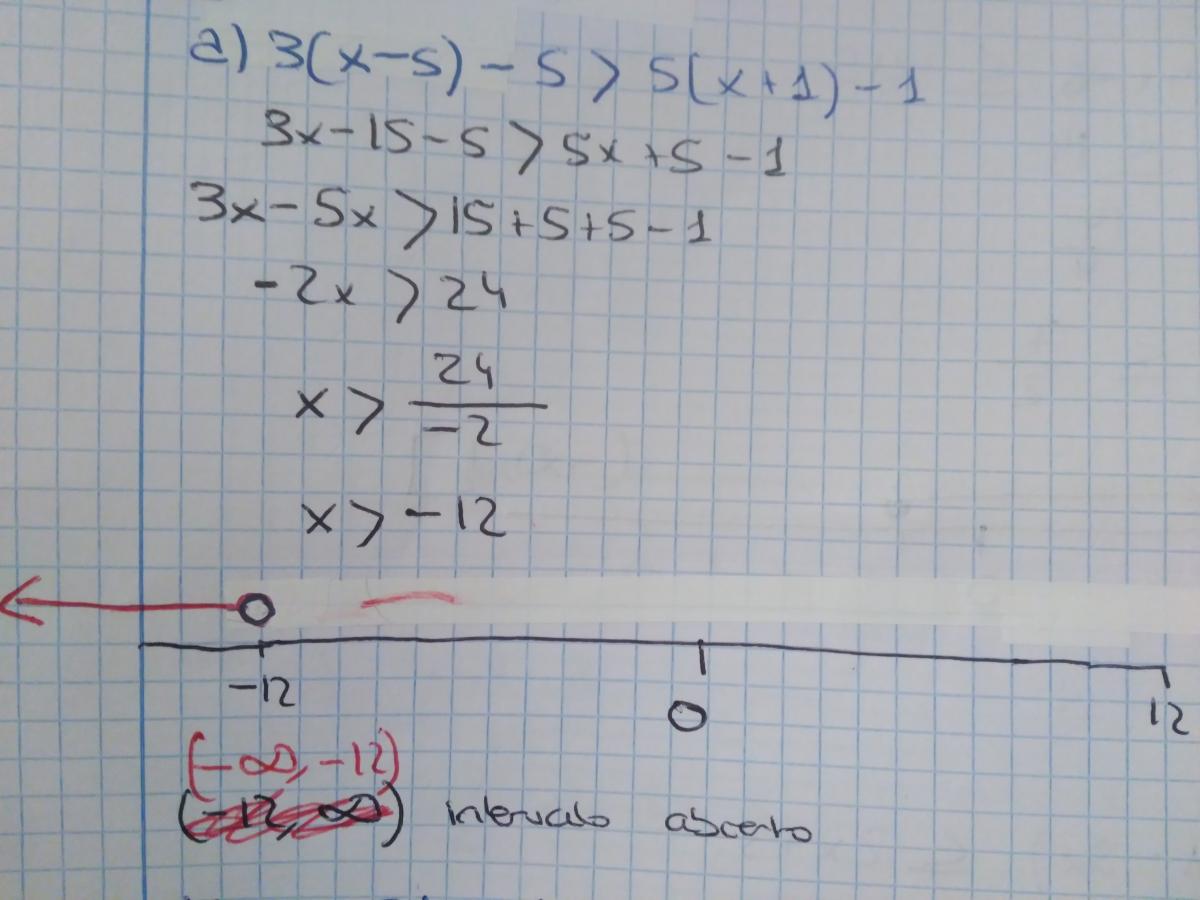 a) 3(x-5) - 5 > 5(x+1) - 1
3x - 15 - 5 > 5x + 5 - 1
3x - 5x > 15 + 5 + 5 - 1
-2x > 24
x > 24/-2
x > -12
-12 0 12
(-∞, -12)
(-12, ∞) intervalo abierto